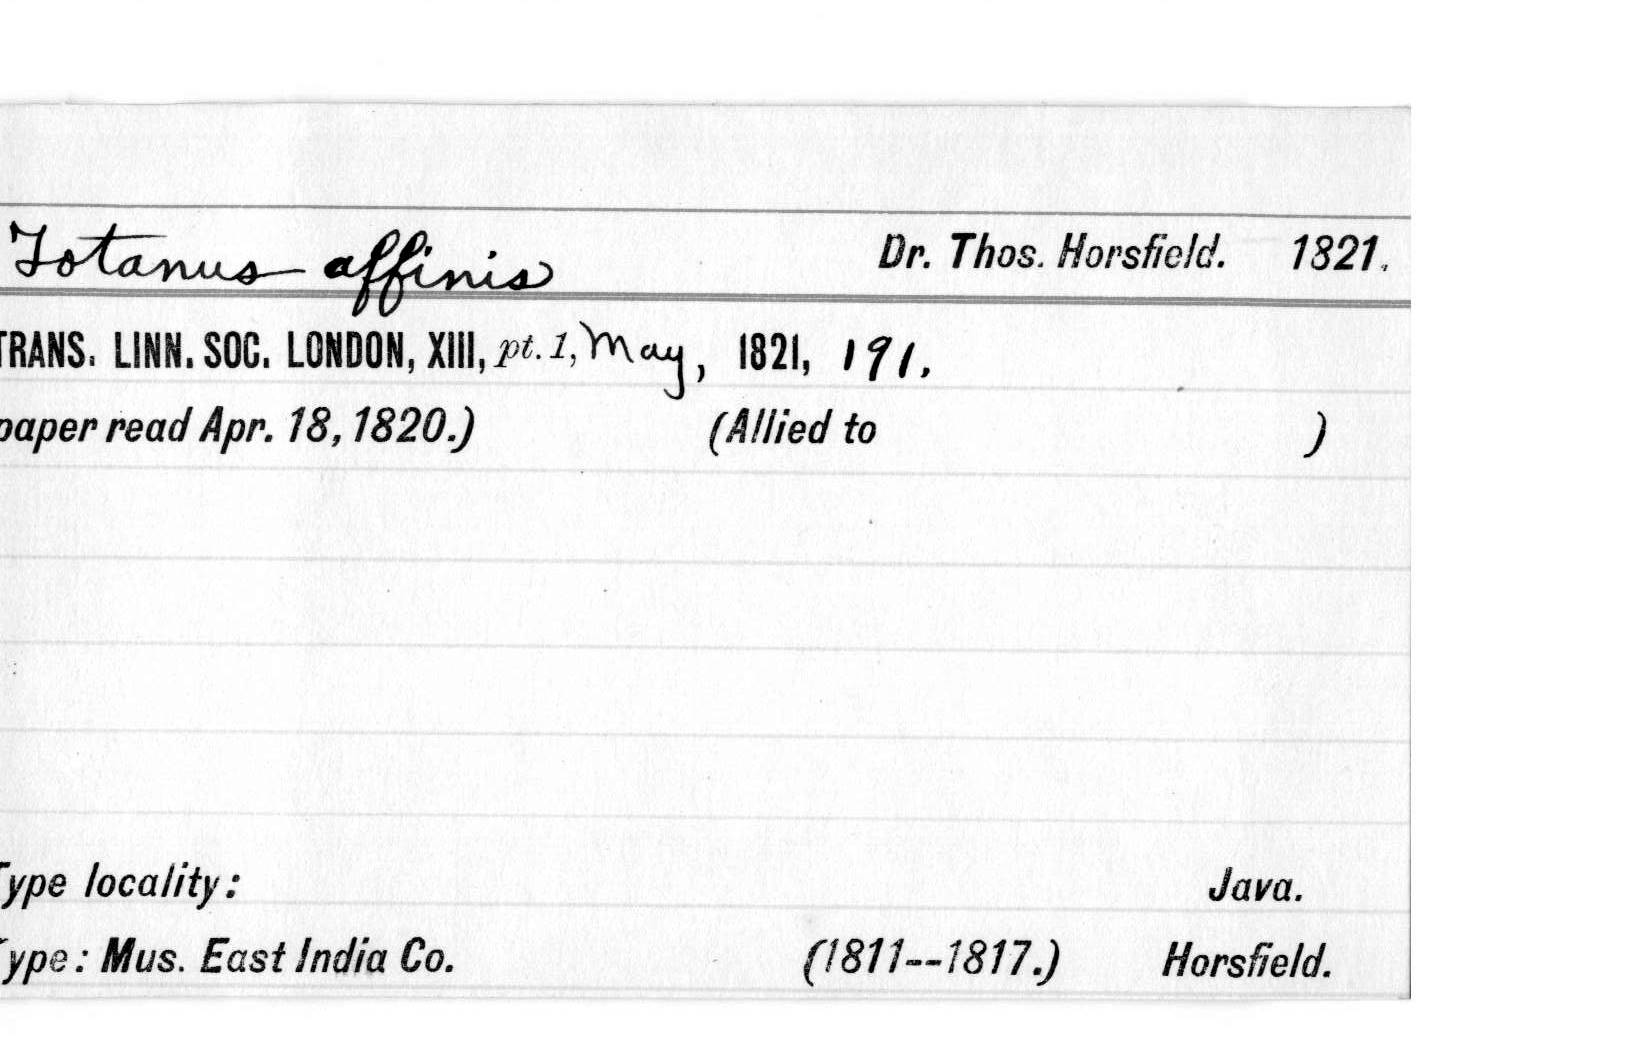 Totanus affinis Dr. Thos. Horsfield. 1821.
TRANS. LINN. SOC. LONDON, XIII, pt. 1, May, 1821, 191.
paper read Apr. 18, 1820.) (Allied to )
Type locality: Java.
Type: Mus. East India Co. (1811--1817.) Horsfield.